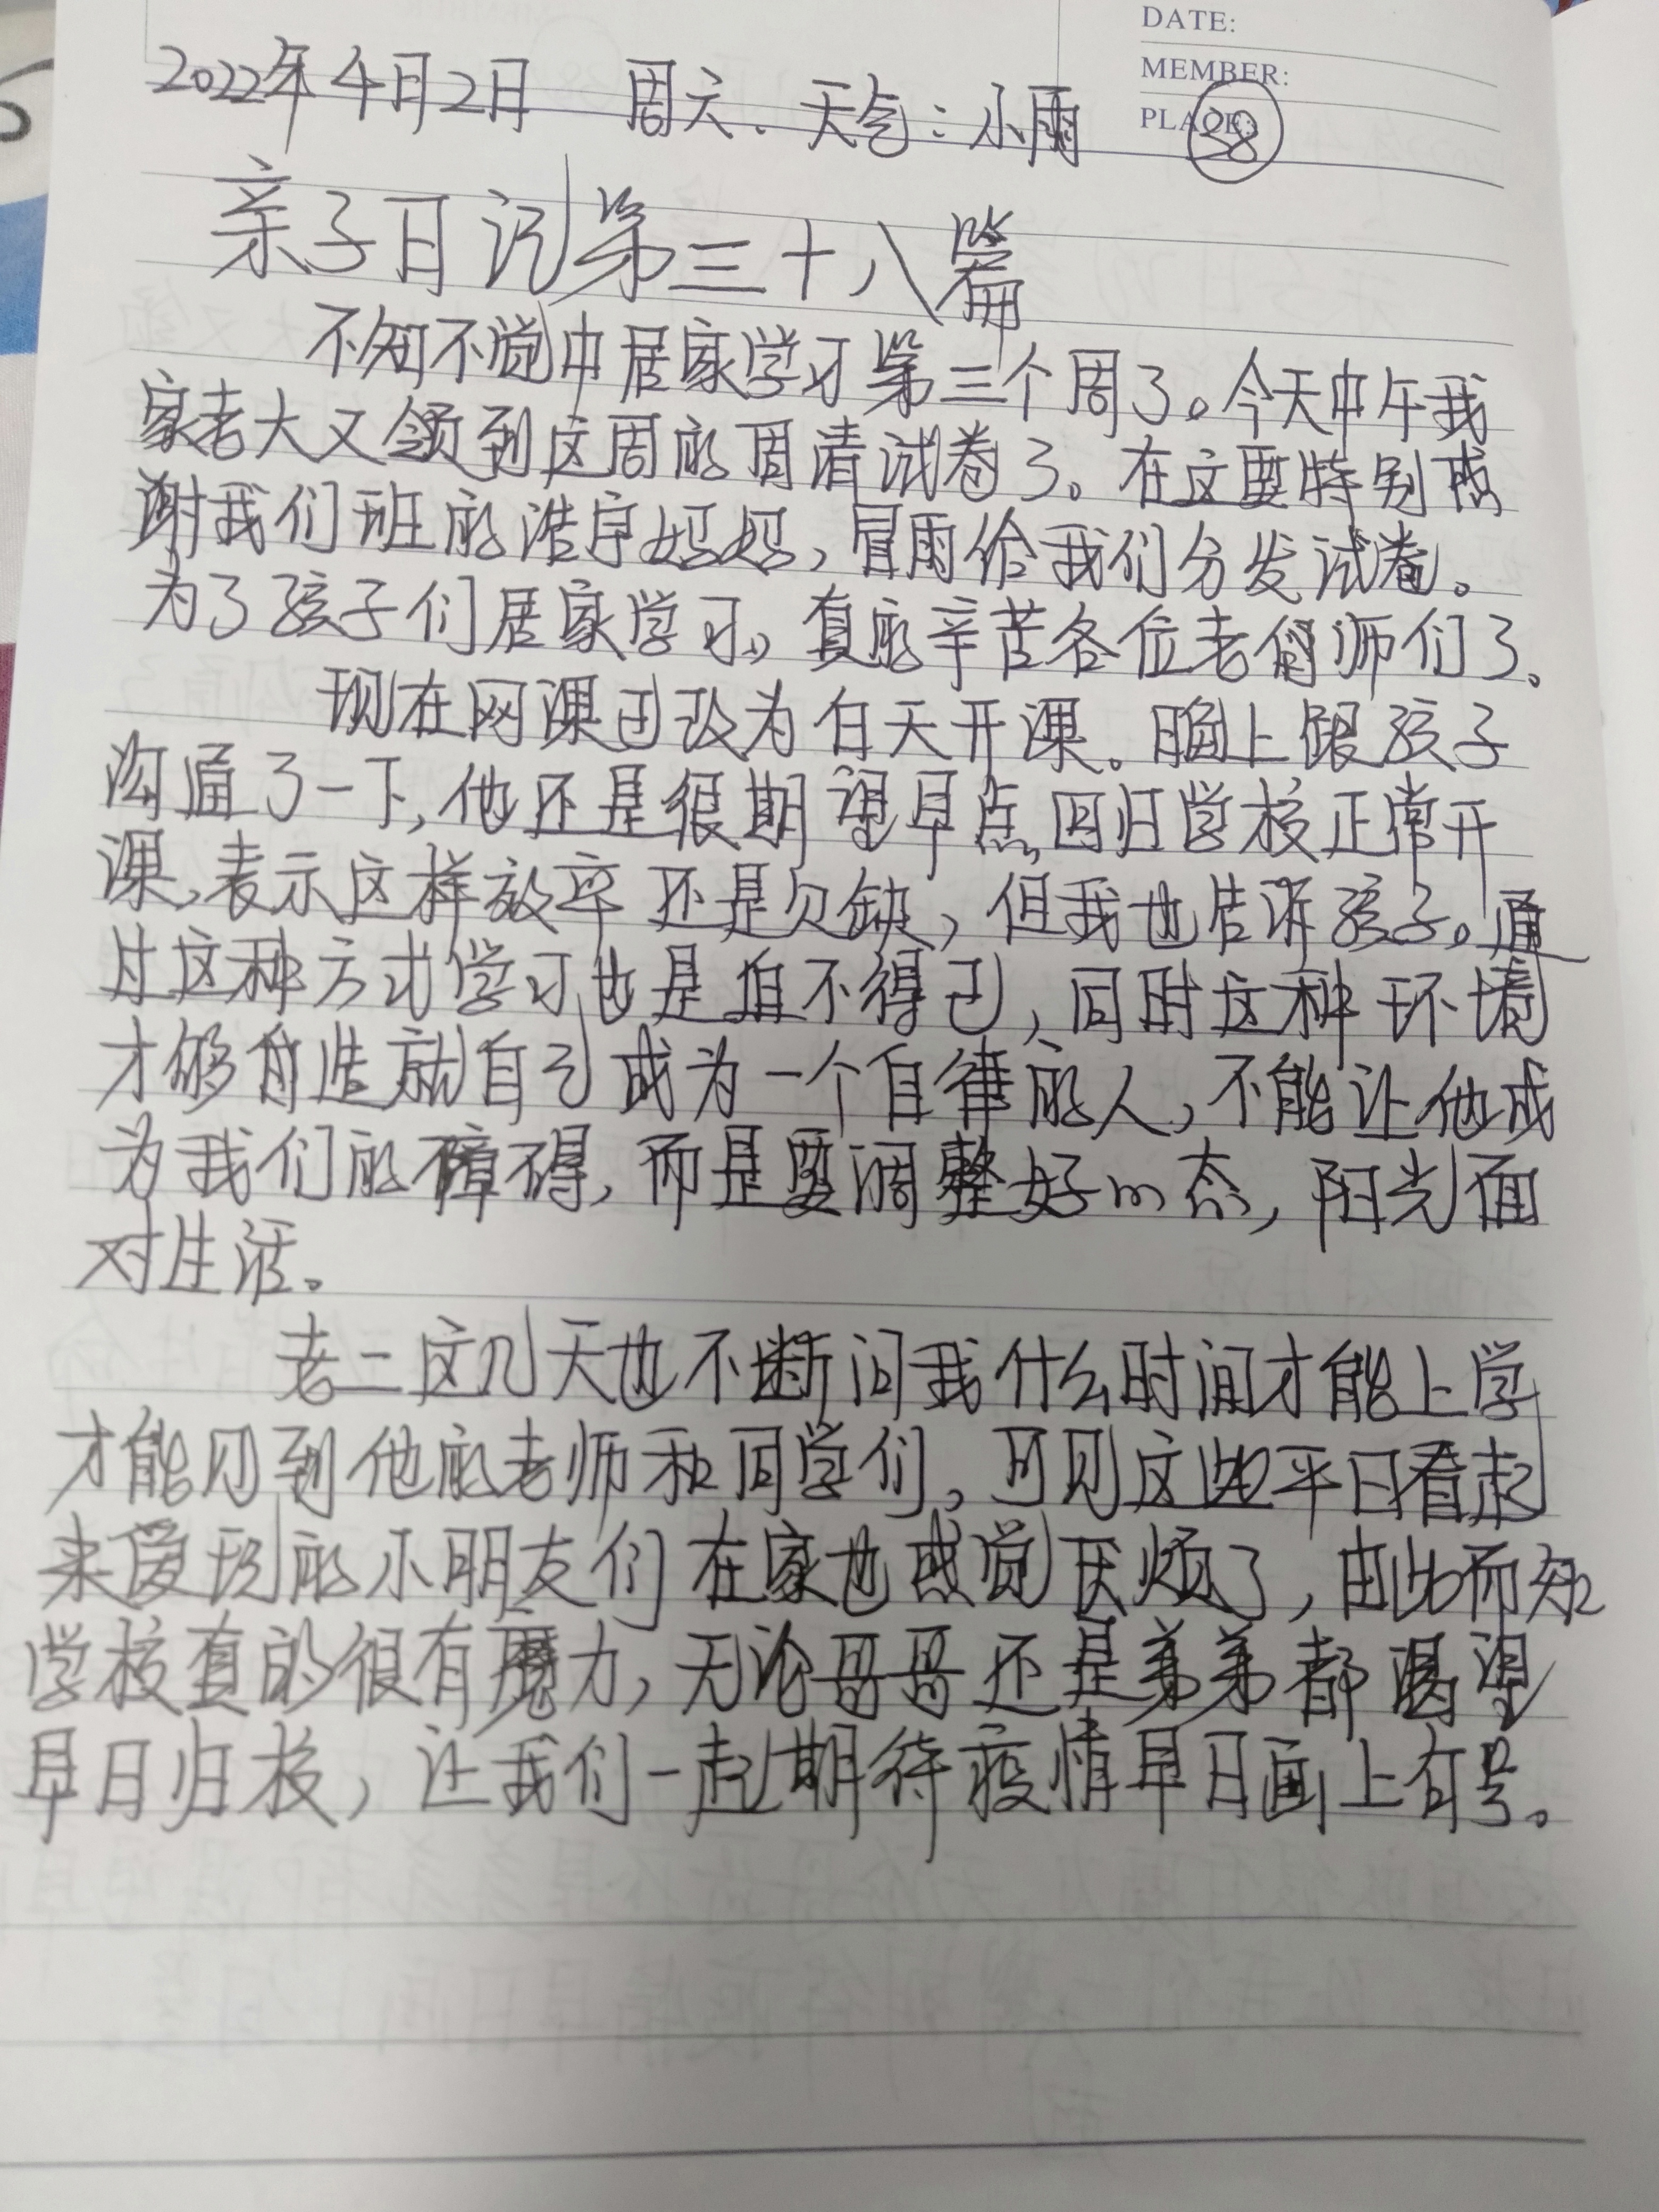 DATE:
MEMBER:
PLACE:
38
2022年4月2日 周六. 天气：小雨
亲子日记第三十八篇
不知不觉中居家学习第三个周了。今天中午我
家老大又领到这周的周清试卷了。在这要特别感
谢我们班的浩宇妈妈，冒雨给我们分发试卷。
为了孩子们居家学习，真的辛苦各位老师们了。
现在网课已改为白天开课。晚上跟孩子
沟通了一下，他还是很期望早点回归学校正常开
课，表示这样效率还是欠缺，但我也告诉孩子。通
过这种方式学习也是迫不得已，同时这种环境
才够造就自己成为一个自律的人，不能让他成
为我们的障碍，而是要调整好心态，阳光面
对生活。
老二这几天也不断问我什么时间才能上学
才能见到他的老师和同学们，可见这些平日看起
来爱玩的小朋友们在家也感觉厌烦了，由此而知
学校真的很有魔力，无论哥哥还是弟弟都渴望
早日归校，让我们一起期待疫情早日画上句号。